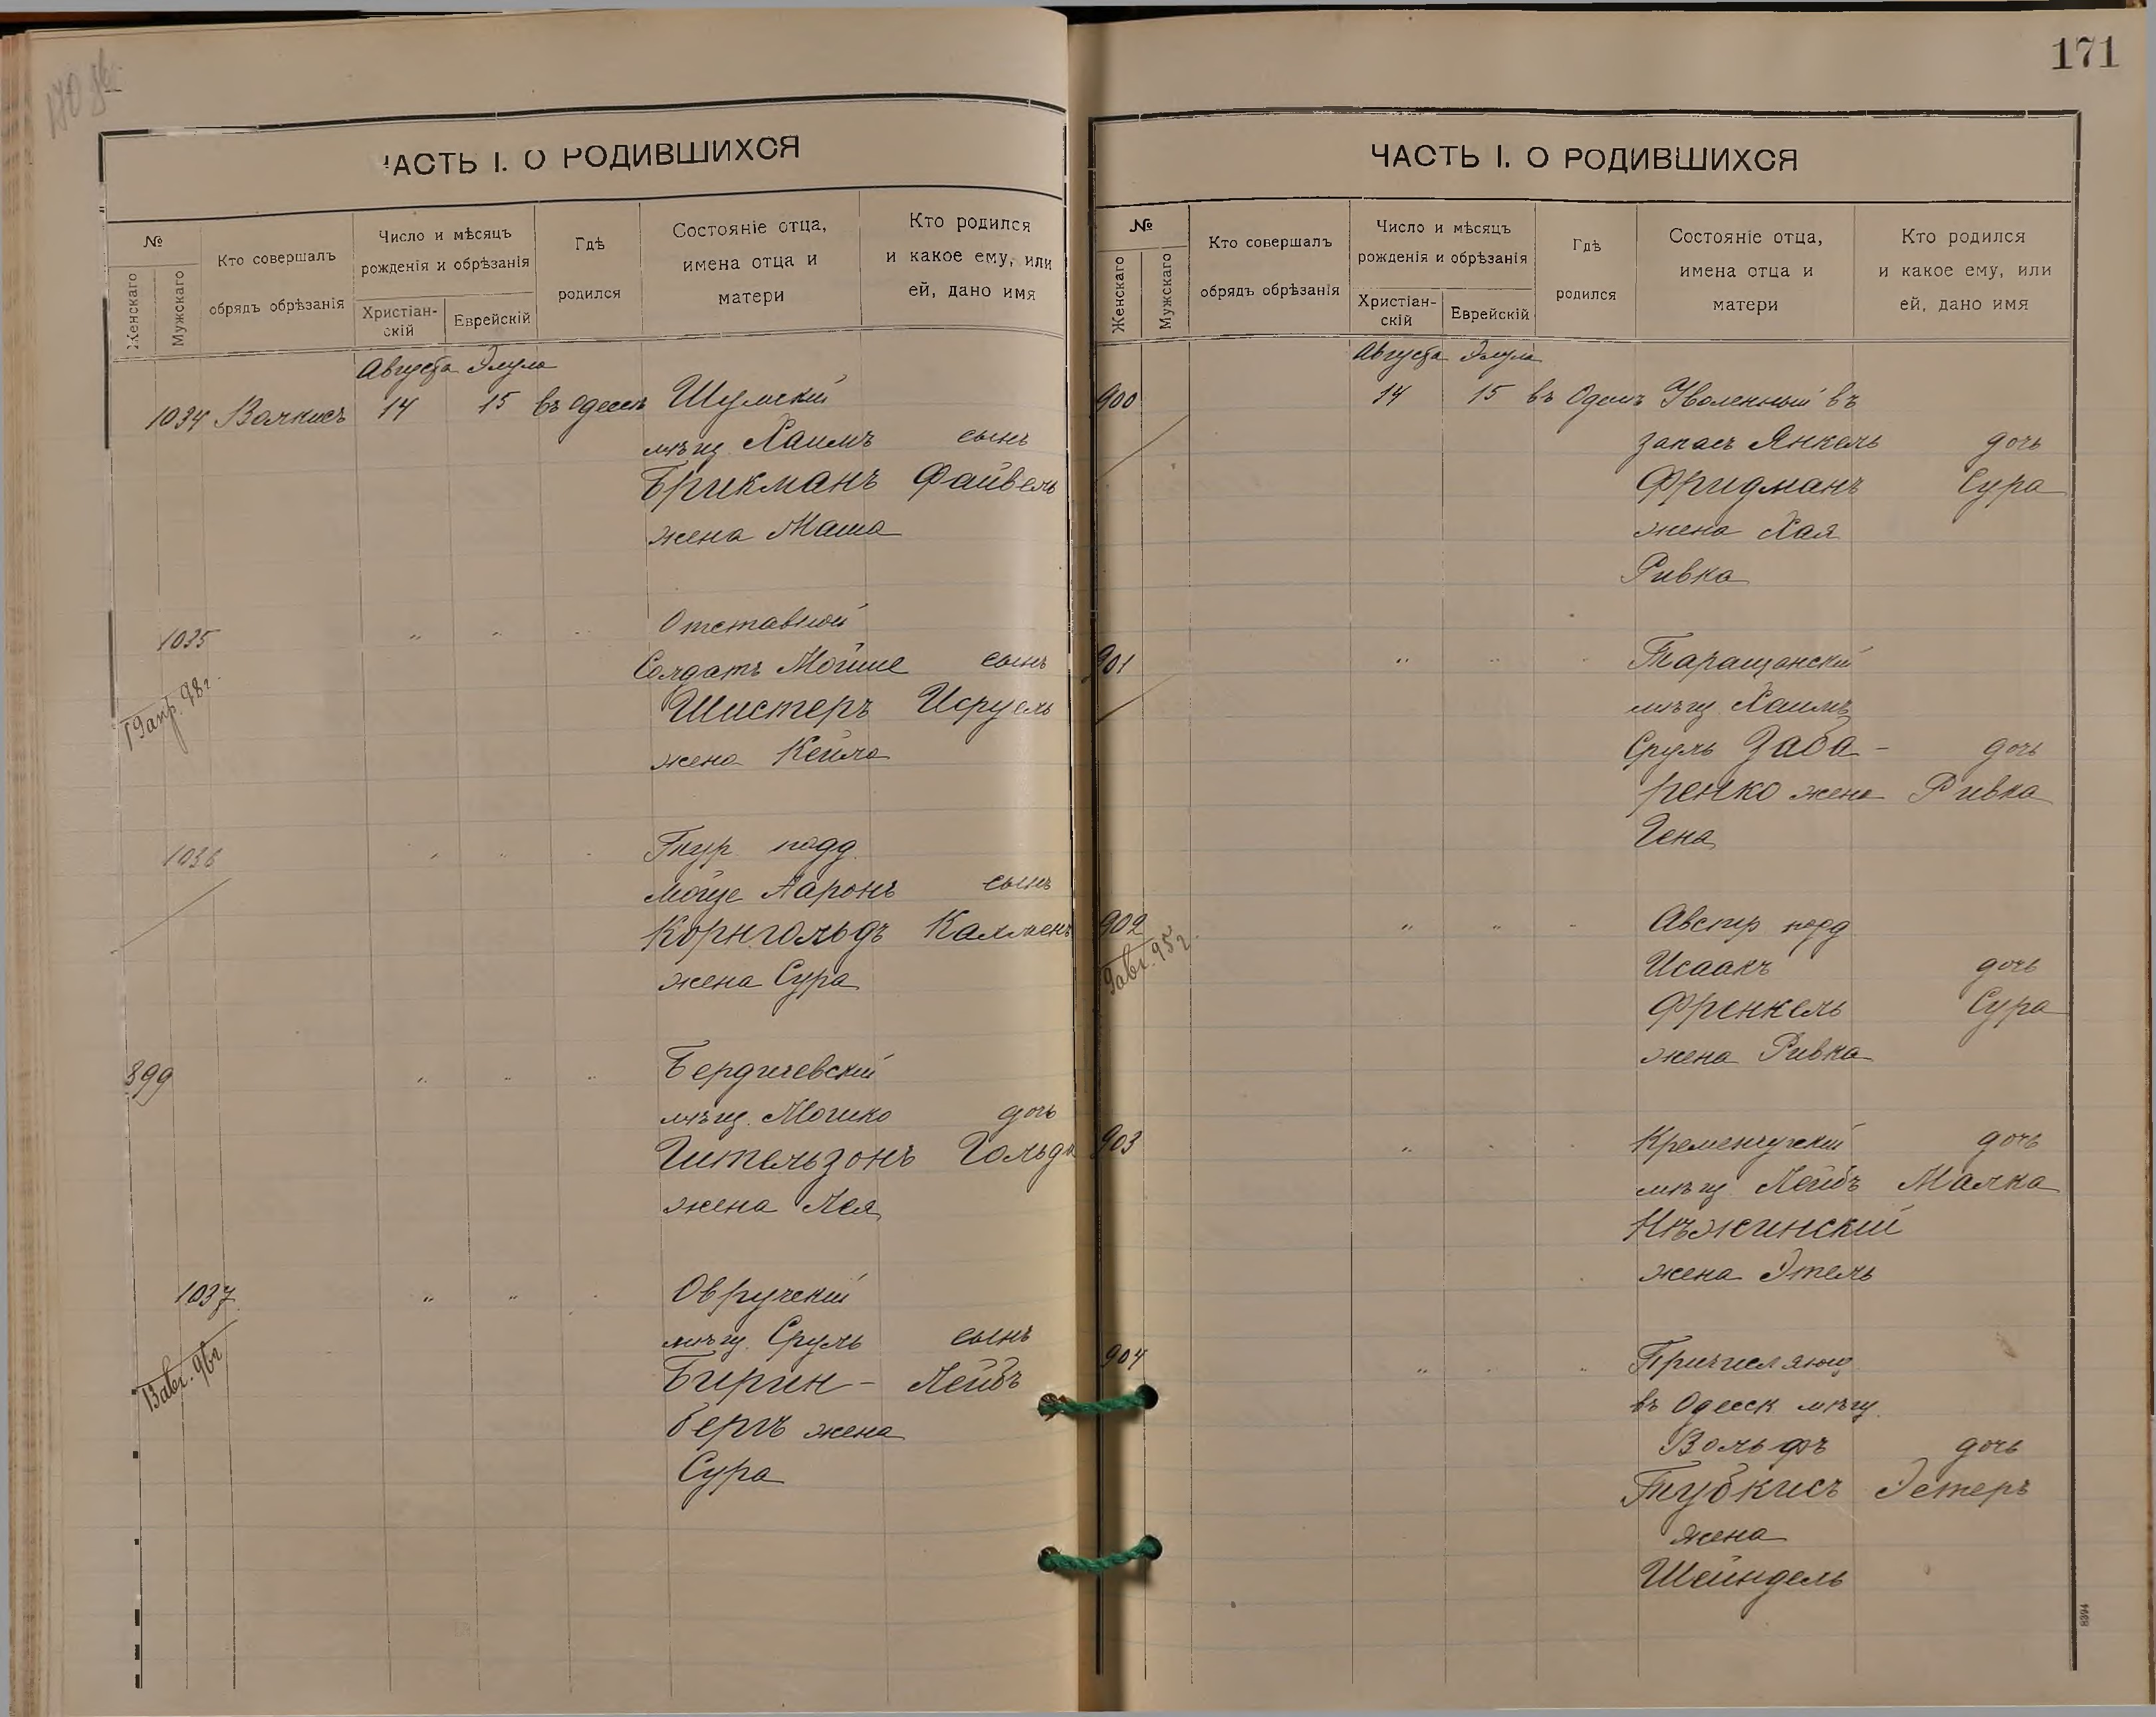 ЧАСТЬ I. О РОДИВШИХСЯ
№
Женскаго
Мужскаго
Кто совершалъ
обрядъ обрѣзанія
Число и мѣсяцъ
рожденія и обрѣзанія
Христіан-
скій
Еврейскій
Гдѣ
родился
Состояніе отца,
имена отца и
матери
Кто родился
и какое ему, или
ей, дано имя
Августа Элула
1034 14 15 въ Одессѣ Шумскій
мѣщ. Хаимъ сынъ
Брикманъ Файвель
жена Маша
1035 " " " Отставной
Солдатъ Мойше сынъ
19 апр. 98 г.
Шистеръ Исруель
жена Кейла
1036 " " " Тур. подд.
Мойше Ааронъ сынъ
Корнгольдъ Калменъ
жена Сура
899 " " " Бердичевскій
мѣщ. Мошко дочь
Гительзонъ Гольда
жена Лея
1037 " " " Овручскій
мѣщ. Сруль сынъ
13 авг. 96 г.
Бирин- Лейбъ
бергъ жена
Сура
171
ЧАСТЬ I. О РОДИВШИХСЯ
№
Женскаго
Мужскаго
Кто совершалъ
обрядъ обрѣзанія
Число и мѣсяцъ
рожденія и обрѣзанія
Христіан-
скій
Еврейскій
Гдѣ
родился
Состояніе отца,
имена отца и
матери
Кто родился
и какое ему, или
ей, дано имя
Августа Элула
900 14 15 въ Одессѣ Уволенный въ
запасъ Янкель дочь
Фридманъ Сура
жена Хая
Ривка
901 " " " Таращанскій
мѣщ. Хаимъ
Сруль Заба- дочь
ренко жена Ривка
Гена
902 " " " Австр. подд.
9 авг. 95 г.
Исаакъ дочь
Френкель Сура
жена Ривка
903 " " " Кременчугскій дочь
мѣщ. Лейбъ Малка
Нѣжинскій
жена Этель
904 " " " Причисляющ.
въ Одесск. мѣщ.
Вольфъ дочь
Тубкисъ Эстеръ
жена
Шейндель
8394